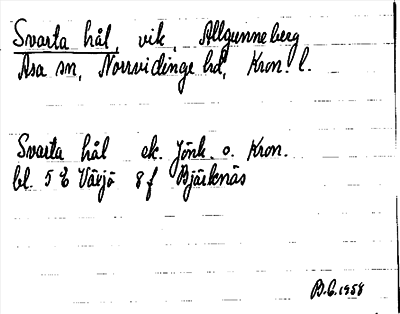 Svarta hål, vik, Allgunneberg
Asa sn, Norrvidinge hd, Kron. l.
Svarta hål ek. Jönk. o. Kron.
bl. 5 E Växjö 8 f Bjärknäs
B.G. 1958